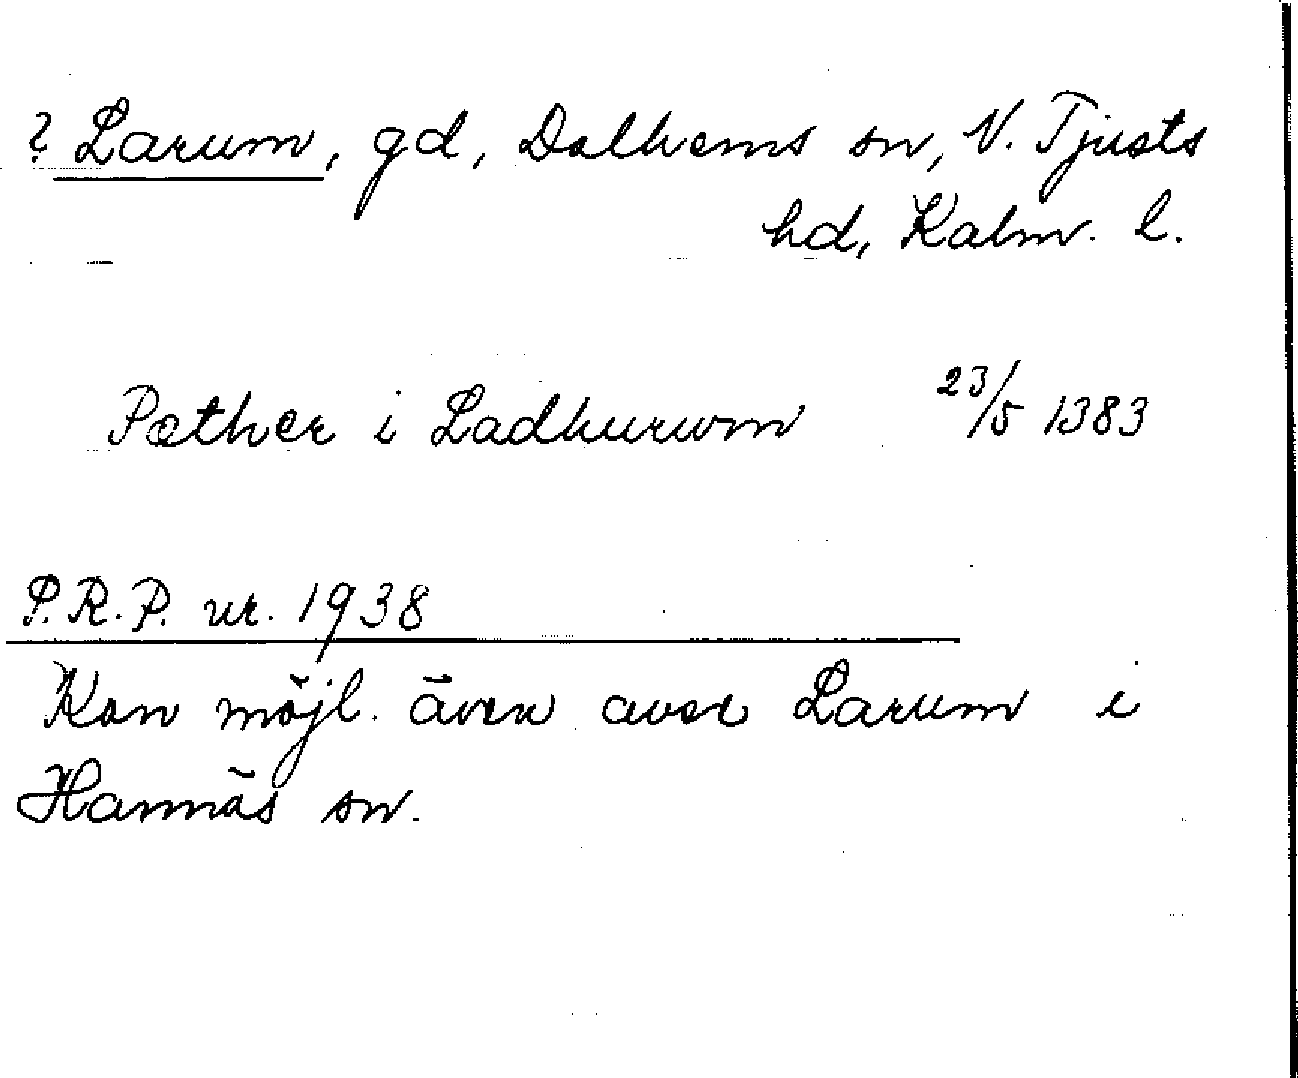 ? Larum, gd, Dalhems sn, N. Tjusts
hd, Kalm. l.
Pæther i Ladhurum 23/5 1383
P.R.P. nr. 1938
Kan möjl. även avse Larum i
Hannäs sn.